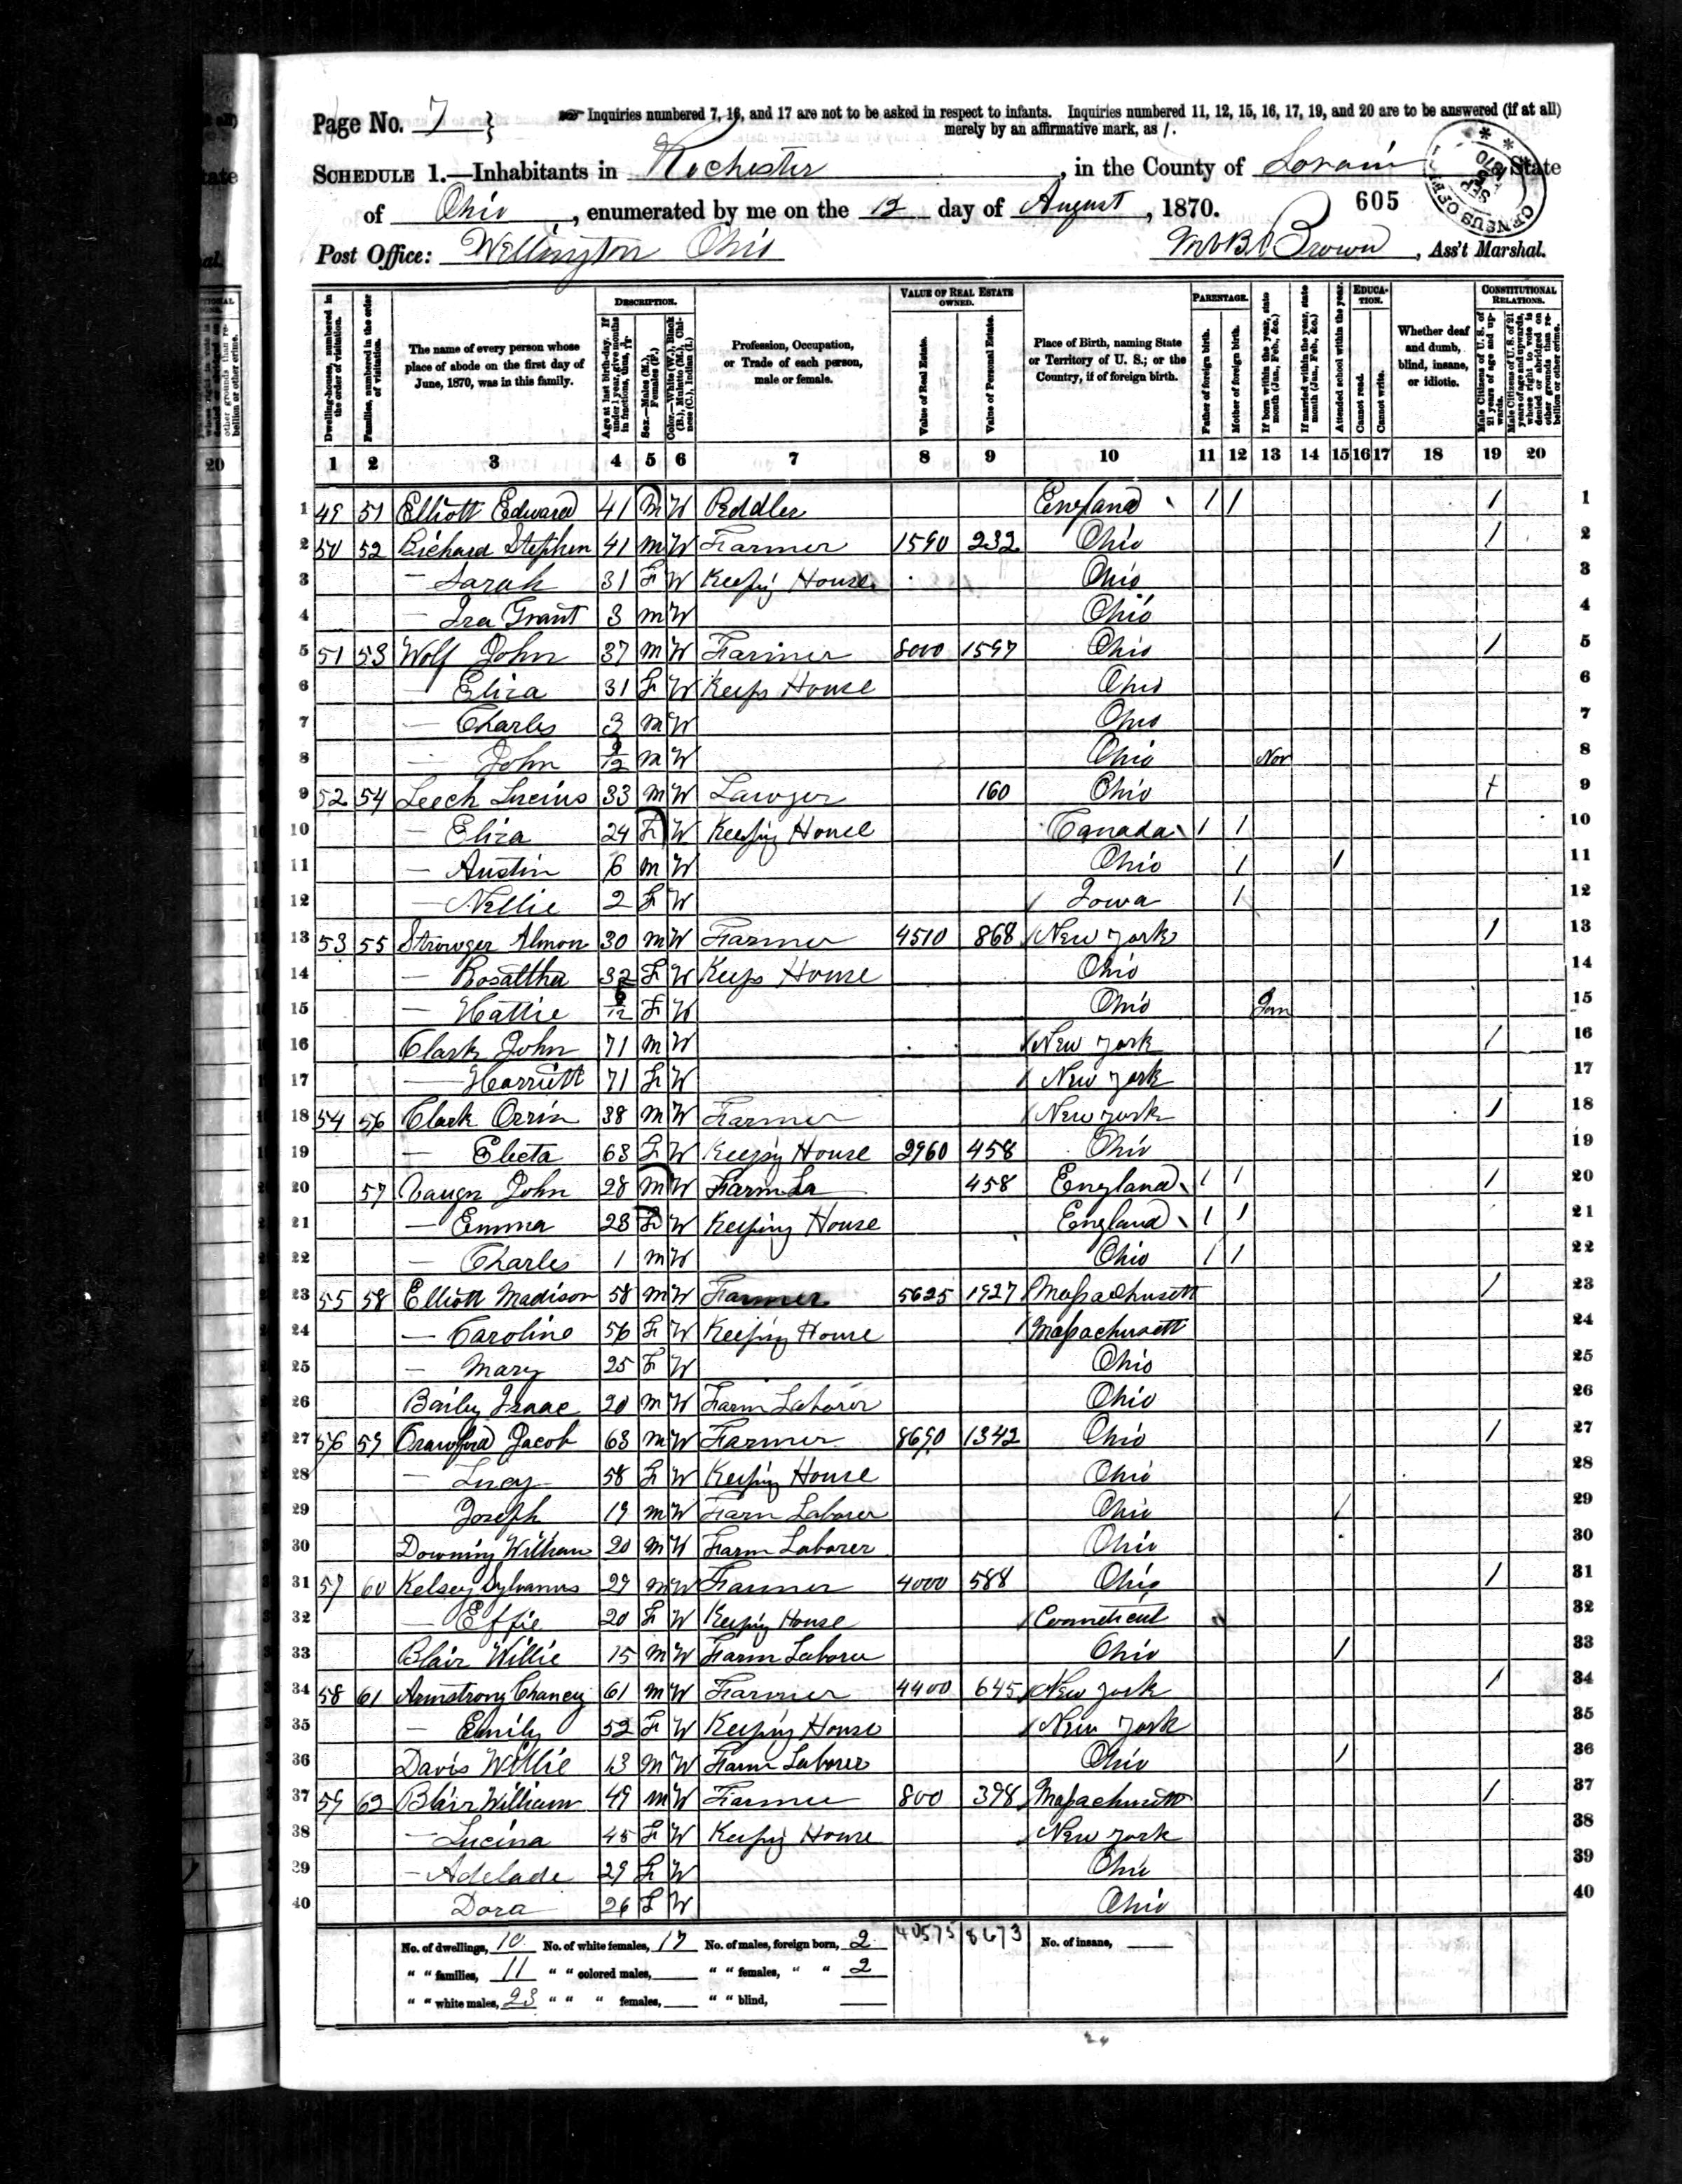 Page No. 7 }
☞ Inquiries numbered 7, 16, and 17 are not to be asked in respect to infants. Inquiries numbered 11, 12, 15, 16, 17, 19, and 20 are to be answered (if at all)
merely by an affirmative mark, as /.
SCHEDULE 1.—Inhabitants in Rochester, in the County of Lorain, State
of Ohio, enumerated by me on the 12 day of August, 1870.
605
Post Office: Wellington Ohio
Brown, Ass't Marshal.
Dwelling-houses, numbered in the order of visitation.
Families, numbered in the order of visitation.
The name of every person whose place of abode on the first day of June, 1870, was in this family.
DESCRIPTION.
Age at last Birth-day. If under 1 year, give months in fractions, thus, 3/12
Sex.—Males (M.), Females (F.)
Color.—White (W.), Black (B.), Mulatto (M.), Chinese (C.), Indian (I.)
Profession, Occupation, or Trade of each person, male or female.
VALUE OF REAL ESTATE OWNED.
Value of Real Estate.
Value of Personal Estate.
Place of Birth, naming State or Territory of U. S.; or the Country, if of foreign birth.
PARENTAGE.
Father of foreign birth.
Mother of foreign birth.
If born within the year, state month (Jan., Feb., &c.)
If married within the year, state month (Jan., Feb., &c.)
Attended school within the year.
EDUCATION.
Cannot read.
Cannot write.
Whether deaf and dumb, blind, insane, or idiotic.
CONSTITUTIONAL RELATIONS.
Male Citizens of U. S. of 21 years of age and upwards.
Male Citizens of U. S. of 21 years of age and upwards, whose right to vote is denied or abridged on other grounds than rebellion or other crime.
1 2 3 4 5 6 7 8 9 10 11 12 13 14 15 16 17 18 19 20
1 49 51 Elliott Edward 41 M W Peddler England / / / 1
2 50 52 Richard Stephen 41 M W Farmer 1590 232 Ohio / 2
3 — Sarah 31 F W Keeping House Ohio 3
4 — Ira Grant 3 M W Ohio 4
5 51 53 Wolf John 37 M W Farmer 8000 1597 Ohio / 5
6 Eliza 31 F W Keeps House Ohio 6
7 — Charles 3 M W Ohio 7
8 — John 9/12 M W Ohio Nov 8
9 52 54 Leech Lucius 33 M W Lawyer 160 Ohio / 9
10 — Eliza 24 F W Keeping House Canada / / 10
11 — Austin 6 M W Ohio / / 11
12 — Nellie 2 F W Iowa / 12
13 53 55 Strowger Almon 30 M W Farmer 4510 868 New York / 13
14 — Rosaltha 32 F W Keeps House Ohio 14
15 — Hattie 6/12 F W Ohio Jan 15
16 Clark John 71 M W New York / 16
17 — Harriett 71 F W New York 17
18 54 56 Clark Orrin 38 M W Farmer New York / 18
19 — Electa 63 F W Keeping House 2960 458 Ohio 19
20 57 Vaugn John 28 M W Farm La 458 England / / / 20
21 — Emma 23 F W Keeping House England / / 21
22 — Charles 1 M W Ohio / / 22
23 55 58 Elliott Madison 58 M W Farmer 5625 1927 Massachusett / 23
24 — Caroline 56 F W Keeping House Massachusett 24
25 — Mary 25 F W Ohio 25
26 Baily Isaac 20 M W Farm Laborer Ohio 26
27 56 59 Crawford Jacob 63 M W Farmer 8690 1342 Ohio / 27
28 — Lucy 58 F W Keeping House Ohio 28
29 Joseph 19 M W Farm Laborer Ohio / 29
30 Downing William 20 M W Farm Laborer Ohio 30
31 57 60 Kelsey Sylvanus 29 M W Farmer 4000 588 Ohio / 31
32 — Effie 20 F W Keeping House Conneticut 32
33 Blair Willie 15 M W Farm Laborer Ohio / 33
34 58 61 Armstrong Chancy 61 M W Farmer 4400 645 New York / 34
35 — Emily 52 F W Keeping House New York 35
36 Davis Willie 13 M W Farm Laborer Ohio / 36
37 59 62 Blair William 49 M W Farmer 800 398 Massachusetts / 37
38 — Lucina 45 F W Keeping House New York 38
39 — Adelade 29 F W Ohio 39
40 Dora 26 F W Ohio 40
No. of dwellings, 10 No. of white females, 17 No. of males, foreign born, 2 40575 8673 No. of insane,
" " families, 11 " " colored males, " " females, " " 2
" " white males, 23 " " " females, " " blind,